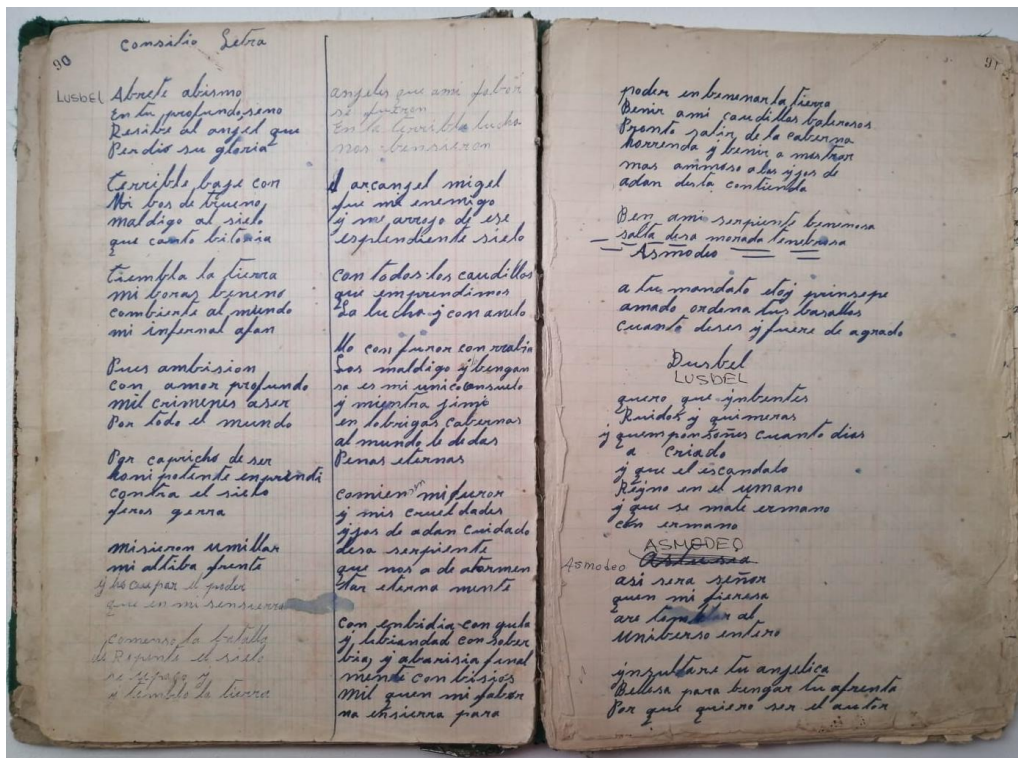 90
Consilio Letra
LUSBEL
Abrete abismo
En tu profundo, seno
Resibe al angel que
Perdio su gloria
terrible baje con
Mi bos de trueno
maldigo al sielo
que canto bitoria
tiembla la tierra
mi boras beneno
combierte al mundo
mi infernal afan
Pues ambision
con amor profundo
mil crimenes aser
Por todo el mundo
Por capricho de ser
homi potente enprendi
contra el sielo
feros gerra
misieron umillar
mi altiba frente
y ocupar el poder
que en mi sensierra
comenso la batalla
de Repente el sielo
se
y temblo la tierra
angeles que ami fabor
se fueron
En la terrible lucha
nos bensieron
el arcangel migel
fue mi enemigo
y me arrojo de ese
esplendiente sielo
con todos los caudillos
que emprendimos
La lucha y con anelo
Yo con furor con rrabia
Los maldigo y bengan
sa es mi unico consuelo
y mientra jimo
en lobrigas cabernas
al mundo le de das
Penas eternas
comiensen mi furor
y mis crueldades
yjos de adan cuidado
desa serpiente
que nos a de atormen
tar eterna mente
con enbidia con gula
y libiandad con sober
bia, y abarisia final
mente con bisios
mil quen mi fabor
na ensierra para
91
poder enbenenar la tierra
Benir ami caudillos balerosos
Pronto salir de la caberna
horrenda y benir a mostrar
mas ammoso a los yjos de
adan desta contienda
Ben ami serpiente benenosa
salta desa morada tenebrosa
Asmodeo
a tu mandato etoy prinsepe
amado ordena tus basallos
cuanto deses y fuere de agrado
Dusbel
LUSBEL
quero que ynbentes
Ruidos y quimeras
y quemponsoñes cuanto dios
a criado
y que el escandalo
Reyno en el umano
y que se mate ermano
con ermano
ASMODEO
Asmodeo
asi sera señor
quen mi fieresa
are temblar al
universo entero
ynsultare tu angelica
Bellesa para bengar tu afrenta
Por que quiero ser el autor